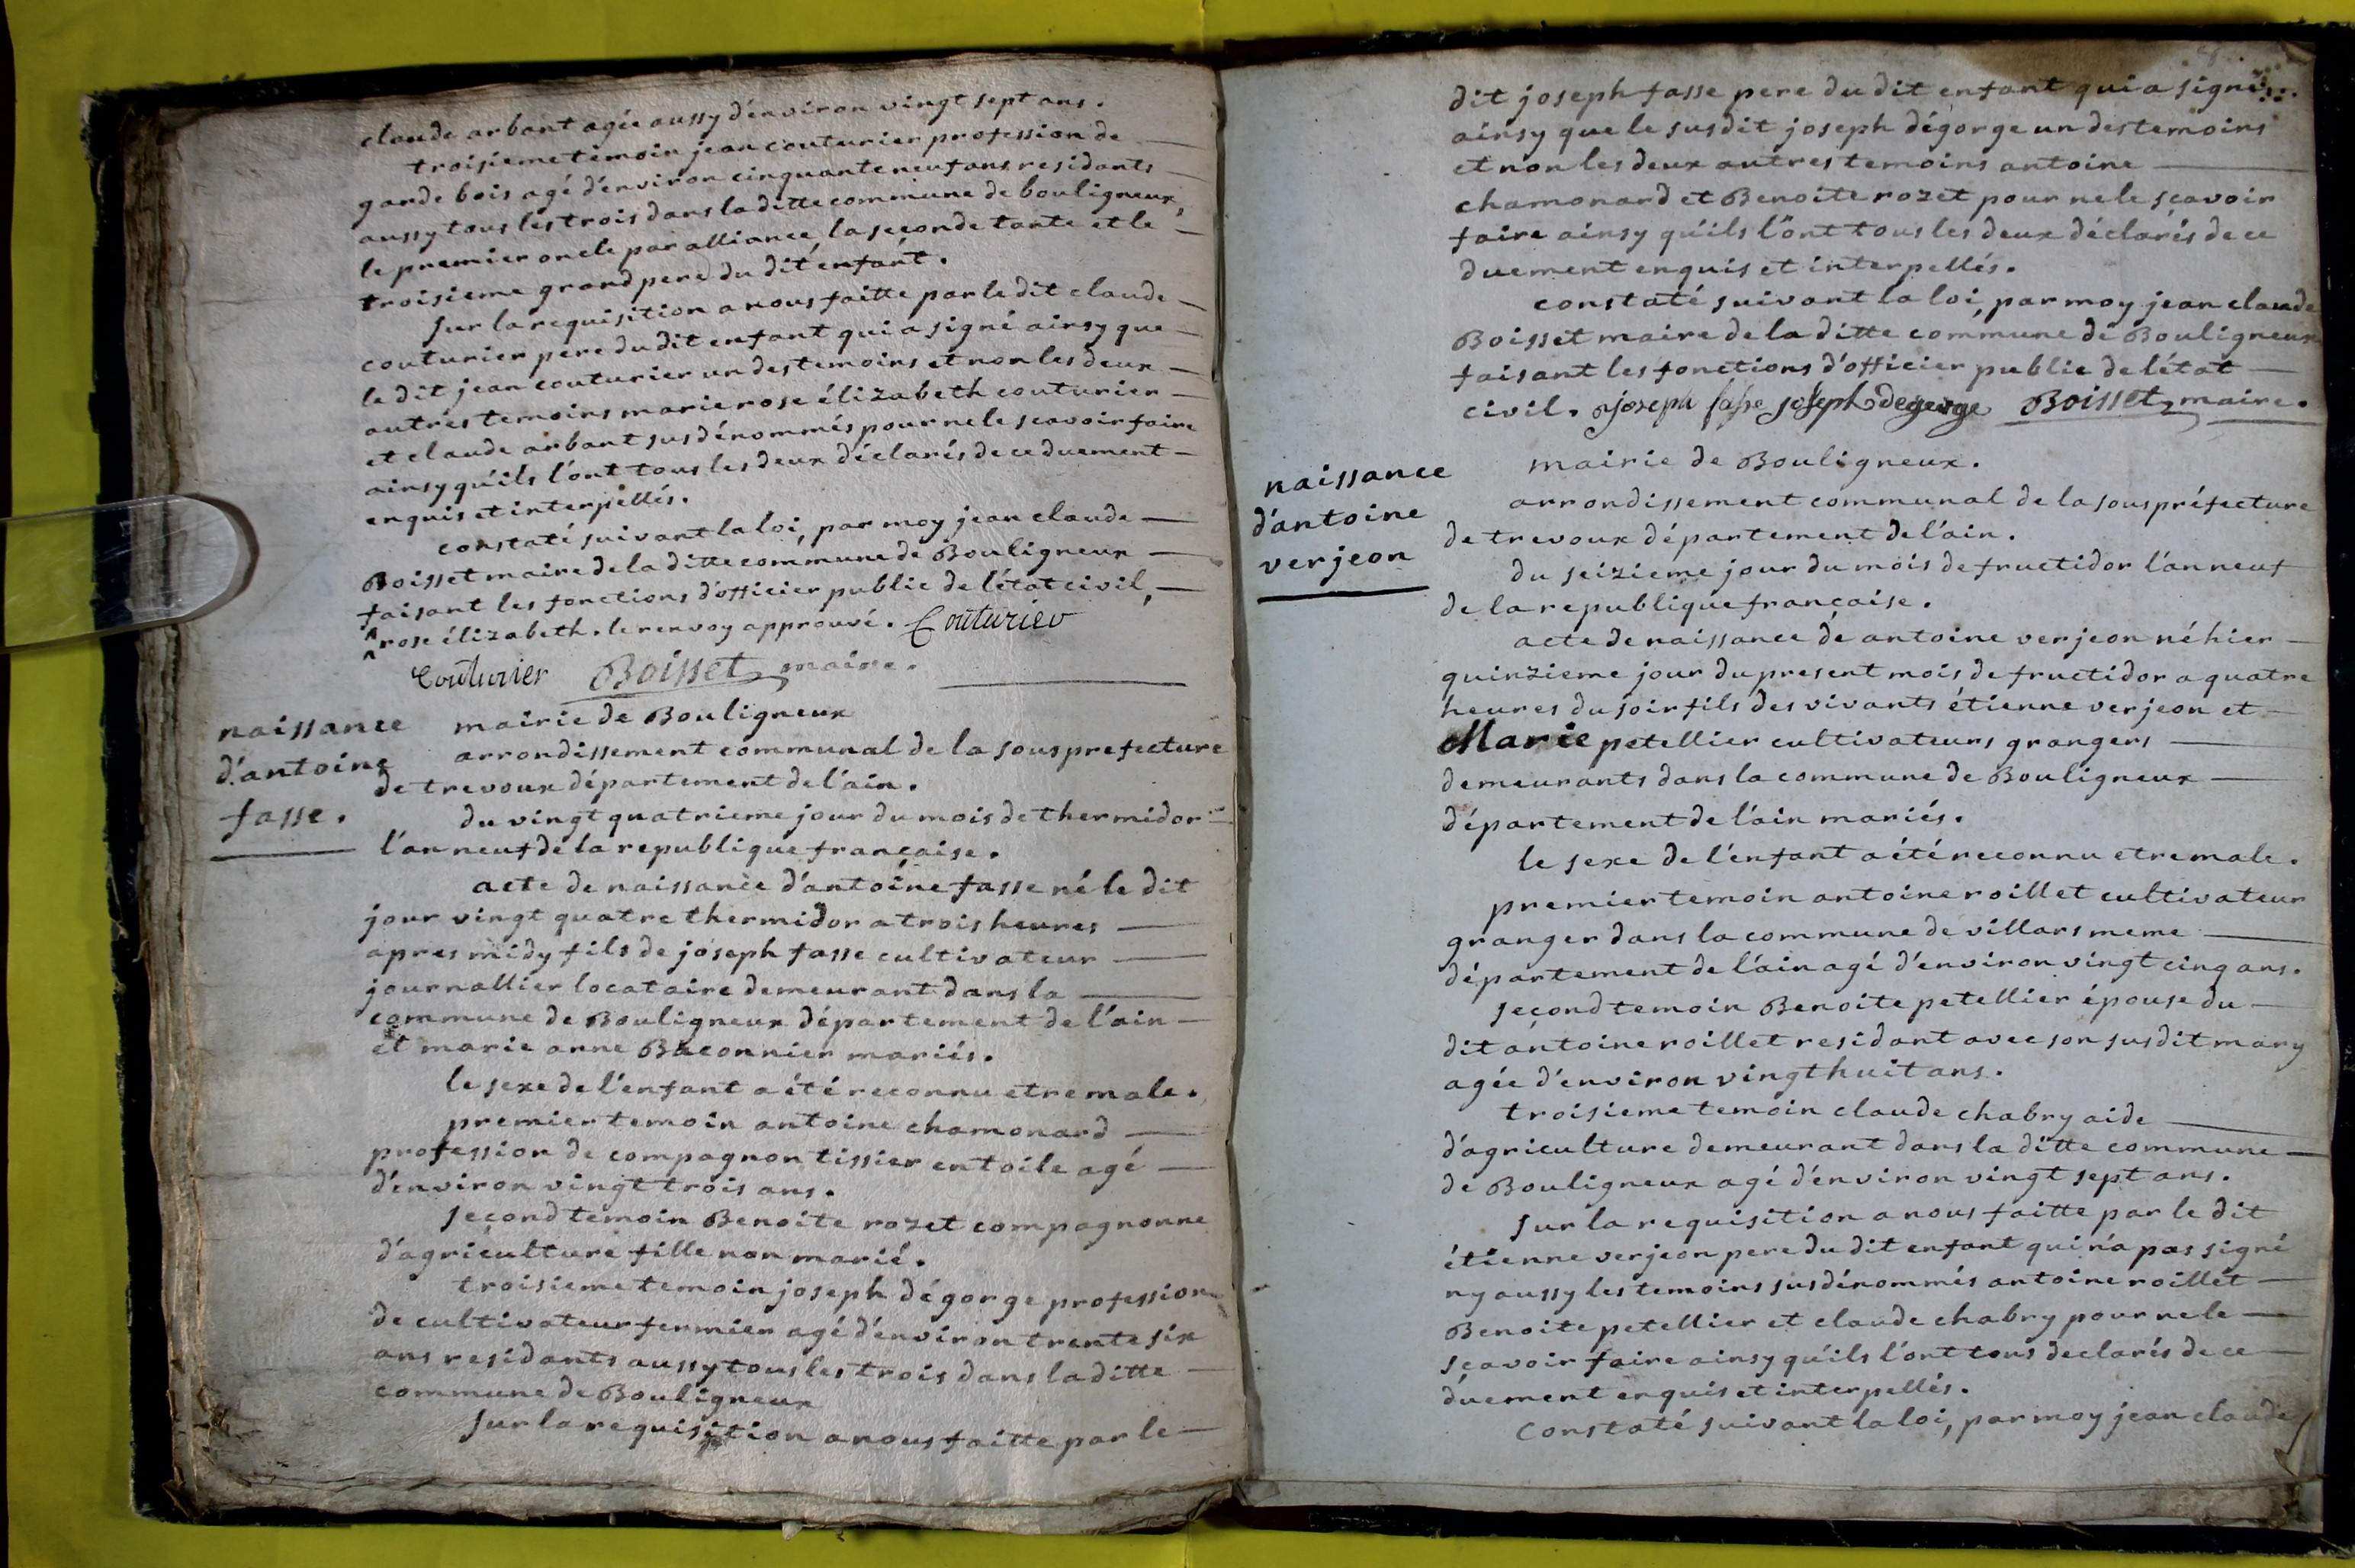 claude arbant agée aussy d'environ vingt sept ans.
troisieme temoin jean couturier profession de
garde bois agé d'environ cinquante neuf ans residants
aussy tous les trois dans la ditte commune de bouligneux,
le premier oncle par alliance, la seconde tante et le
troisieme grand pere du dit enfant.
sur la requisition a nous faitte par le dit claude
couturier pere du dit enfant qui a signé ainsy que
le dit jean couturier un des temoins et non les deux
autres temoins marie rose élizabeth couturier
et claude arbant sus dénommés pour ne le scavoir faire
ainsy qu'ils l'ont tous les deux déclarés de ce duement
enquis et interpellés.
constaté suivant la loi, par moy jean claude
Boisset maire de la ditte commune de Bouligneux
faisant les fonctions d'officier public de l'état civil,
rose élizabeth. le renvoy approuvé. Couturier
Couturier Boisset maire.
naissance
d'antoine
fasse.
mairie de Bouligneux
arrondissement communal de la sous prefecture
de trevoux département de l'ain.
du vingt quatrieme jour du mois de thermidor
l'an neuf de la republique française.
acte de naissance d'antoine fasse né le dit
jour vingt quatre thermidor a trois heures
apres midy fils de joseph fasse cultivateur
journallier locataire demeurant dans la
commune de Bouligneux département de l'ain
et marie anne Baconnier mariés.
le sexe de l'enfant a été reconnu etre male.
premier temoin antoine chamonard
profession de compagnon tissier en toile agé
d'environ vingt trois ans.
second temoin Benoite rozet compagnonne
d'agriculture fille non marié.
troisieme temoin joseph dégorge profession
de cultivateur fermier agé d'environ trente six
ans residants aussy tous les trois dans la ditte
commune de Bouligneux
sur la requisition a nous faitte par le
dit joseph fasse pere du dit enfant qui a signé
ainsy que le susdit joseph dégorge un des temoins
et non les deux autres temoins antoine
chamonard et Benoite rozet pour ne le scavoir
faire ainsy qu'ils l'ont tous les deux déclarés de ce
duement enquis et interpellés.
constaté suivant la loi, par moy jean claude
Boisset maire de la ditte commune de Bouligneux
faisant les fonctions d'officier public de l'état
civil. joseph fasse joseph degeorge Boisset maire.
naissance
d'antoine
verjeon
mairie de Bouligneux.
arrondissement communal de la sous préfecture
de trevoux département de l'ain.
du seizieme jour du mois de fructidor l'an neuf
de la republique française.
acte de naissance de antoine verjeon né hier
quinzieme jour du present mois de fructidor a quatre
heures du soir fils des vivants étienne verjeon et
Marie petellier cultivateurs grangers
demeurants dans la commune de Bouligneux
département de l'ain mariés.
le sexe de l'enfant a été reconnu etre male.
premier temoin antoine roillet cultivateur
granger dans la commune de villars meme
département de l'ain agé d'environ vingt cinq ans.
second temoin Benoite petellier épouse du
dit antoine roillet residant avec son susdit mary
agée d'environ vingt huit ans.
troisieme temoin claude chabry aide
d'agriculture demeurant dans la ditte commune
de Bouligneux agé d'environ vingt sept ans.
sur la requisition a nous faitte par le dit
étienne verjeon pere du dit enfant qui n'a pas signé
ny aussy les temoins susdénommés antoine roillet
Benoite petellier et claude chabry pour ne le
scavoir faire ainsy qu'ils l'ont tous declarés de ce
duement enquis et interpellés.
Constaté suivant la loi, par moy jean claude